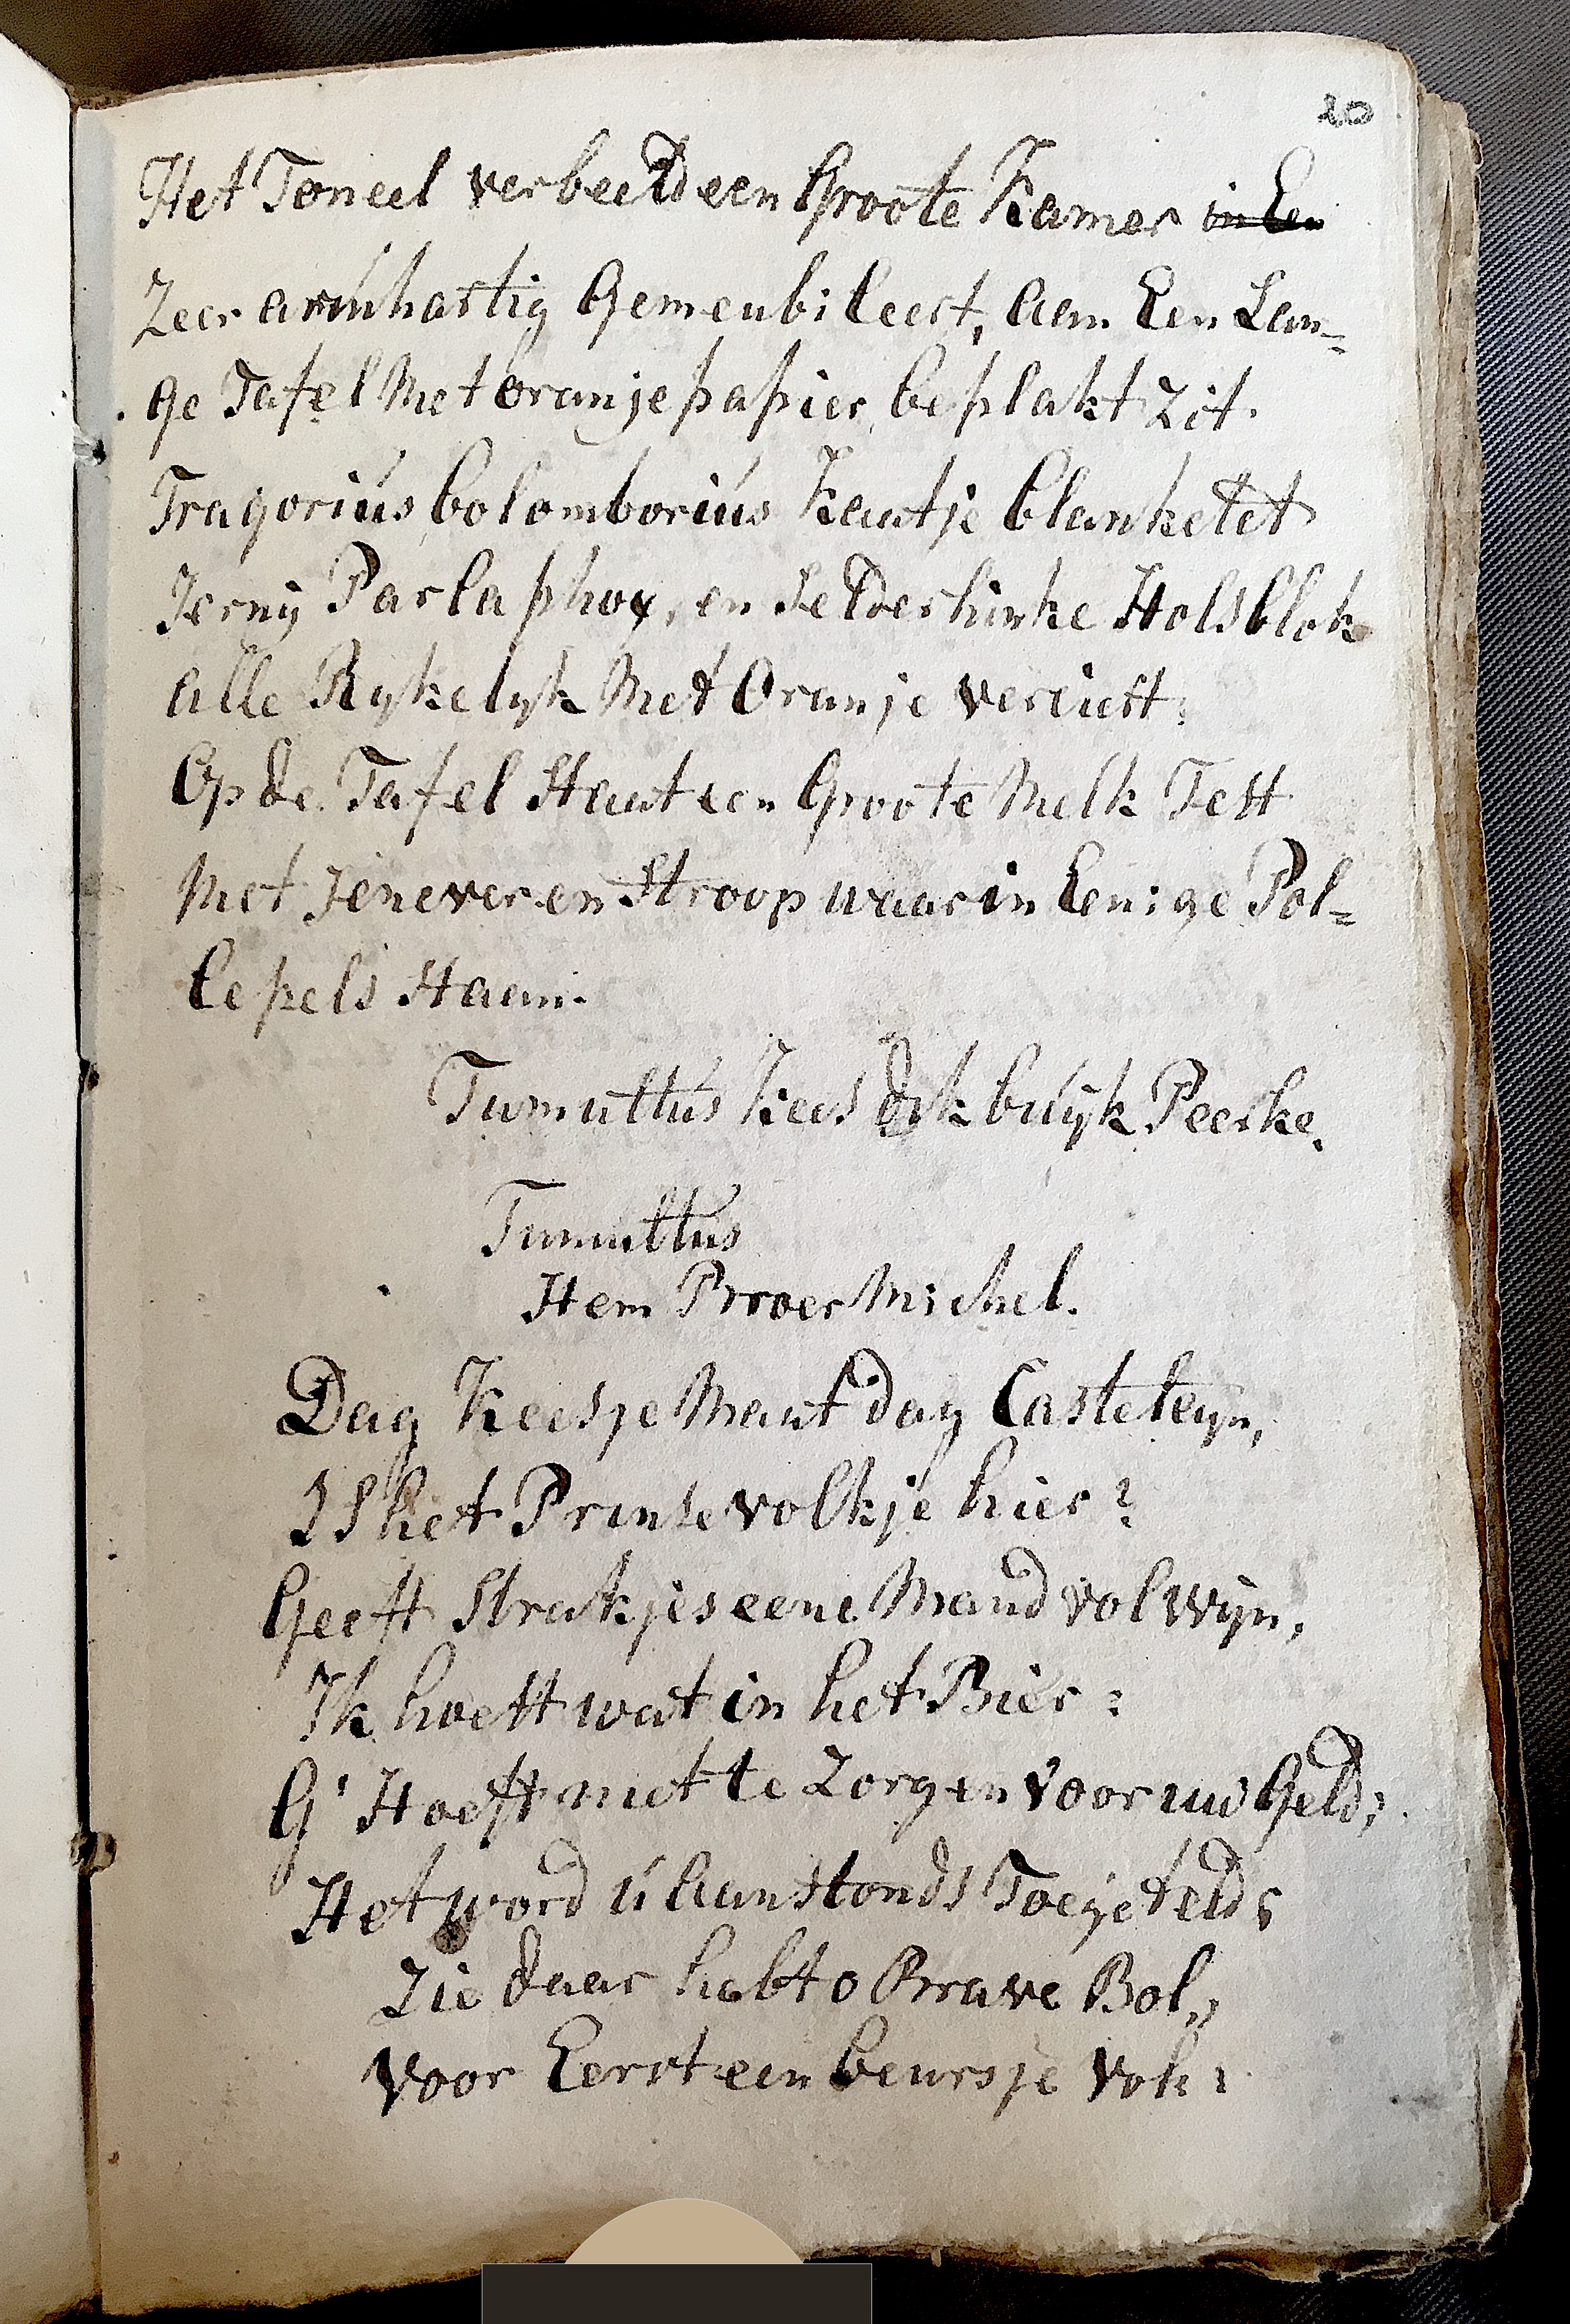 20
Het Toneel verbeeld een Groote Kamer in Een
Zeer armhartig Gemeubileert, aan Een Lan=
ge Tafel Met oranje papier beplakt Zit.
Tragorius bolomborius Kaatje blanketet
Jerny Parlaphoy, en Selderhinke Holsblok
alle Rykelyk Met Oranje verciert.
Op de Tafel Staat een Groote Melk Test
Met Jenever en Stroop waar in Eenige Pol=
lepels Staan.
Tumultus Kees dik buijk Peerke.
Tumultus
Stem Proer Michel.
Dag Keesje Maat dag Casteleyn,
Is het Prinse volkje hier?
Geeft Strakjes eene Mand vol Wyn,
Ik hoest wat in het Bier:
G' Hoeft niet te Zorgen voor uw Geld;
Het word ú aanstonds Toegeteld;
Zie daar habt o Brave Bol,,
Voor Eerst een beursje Vol: